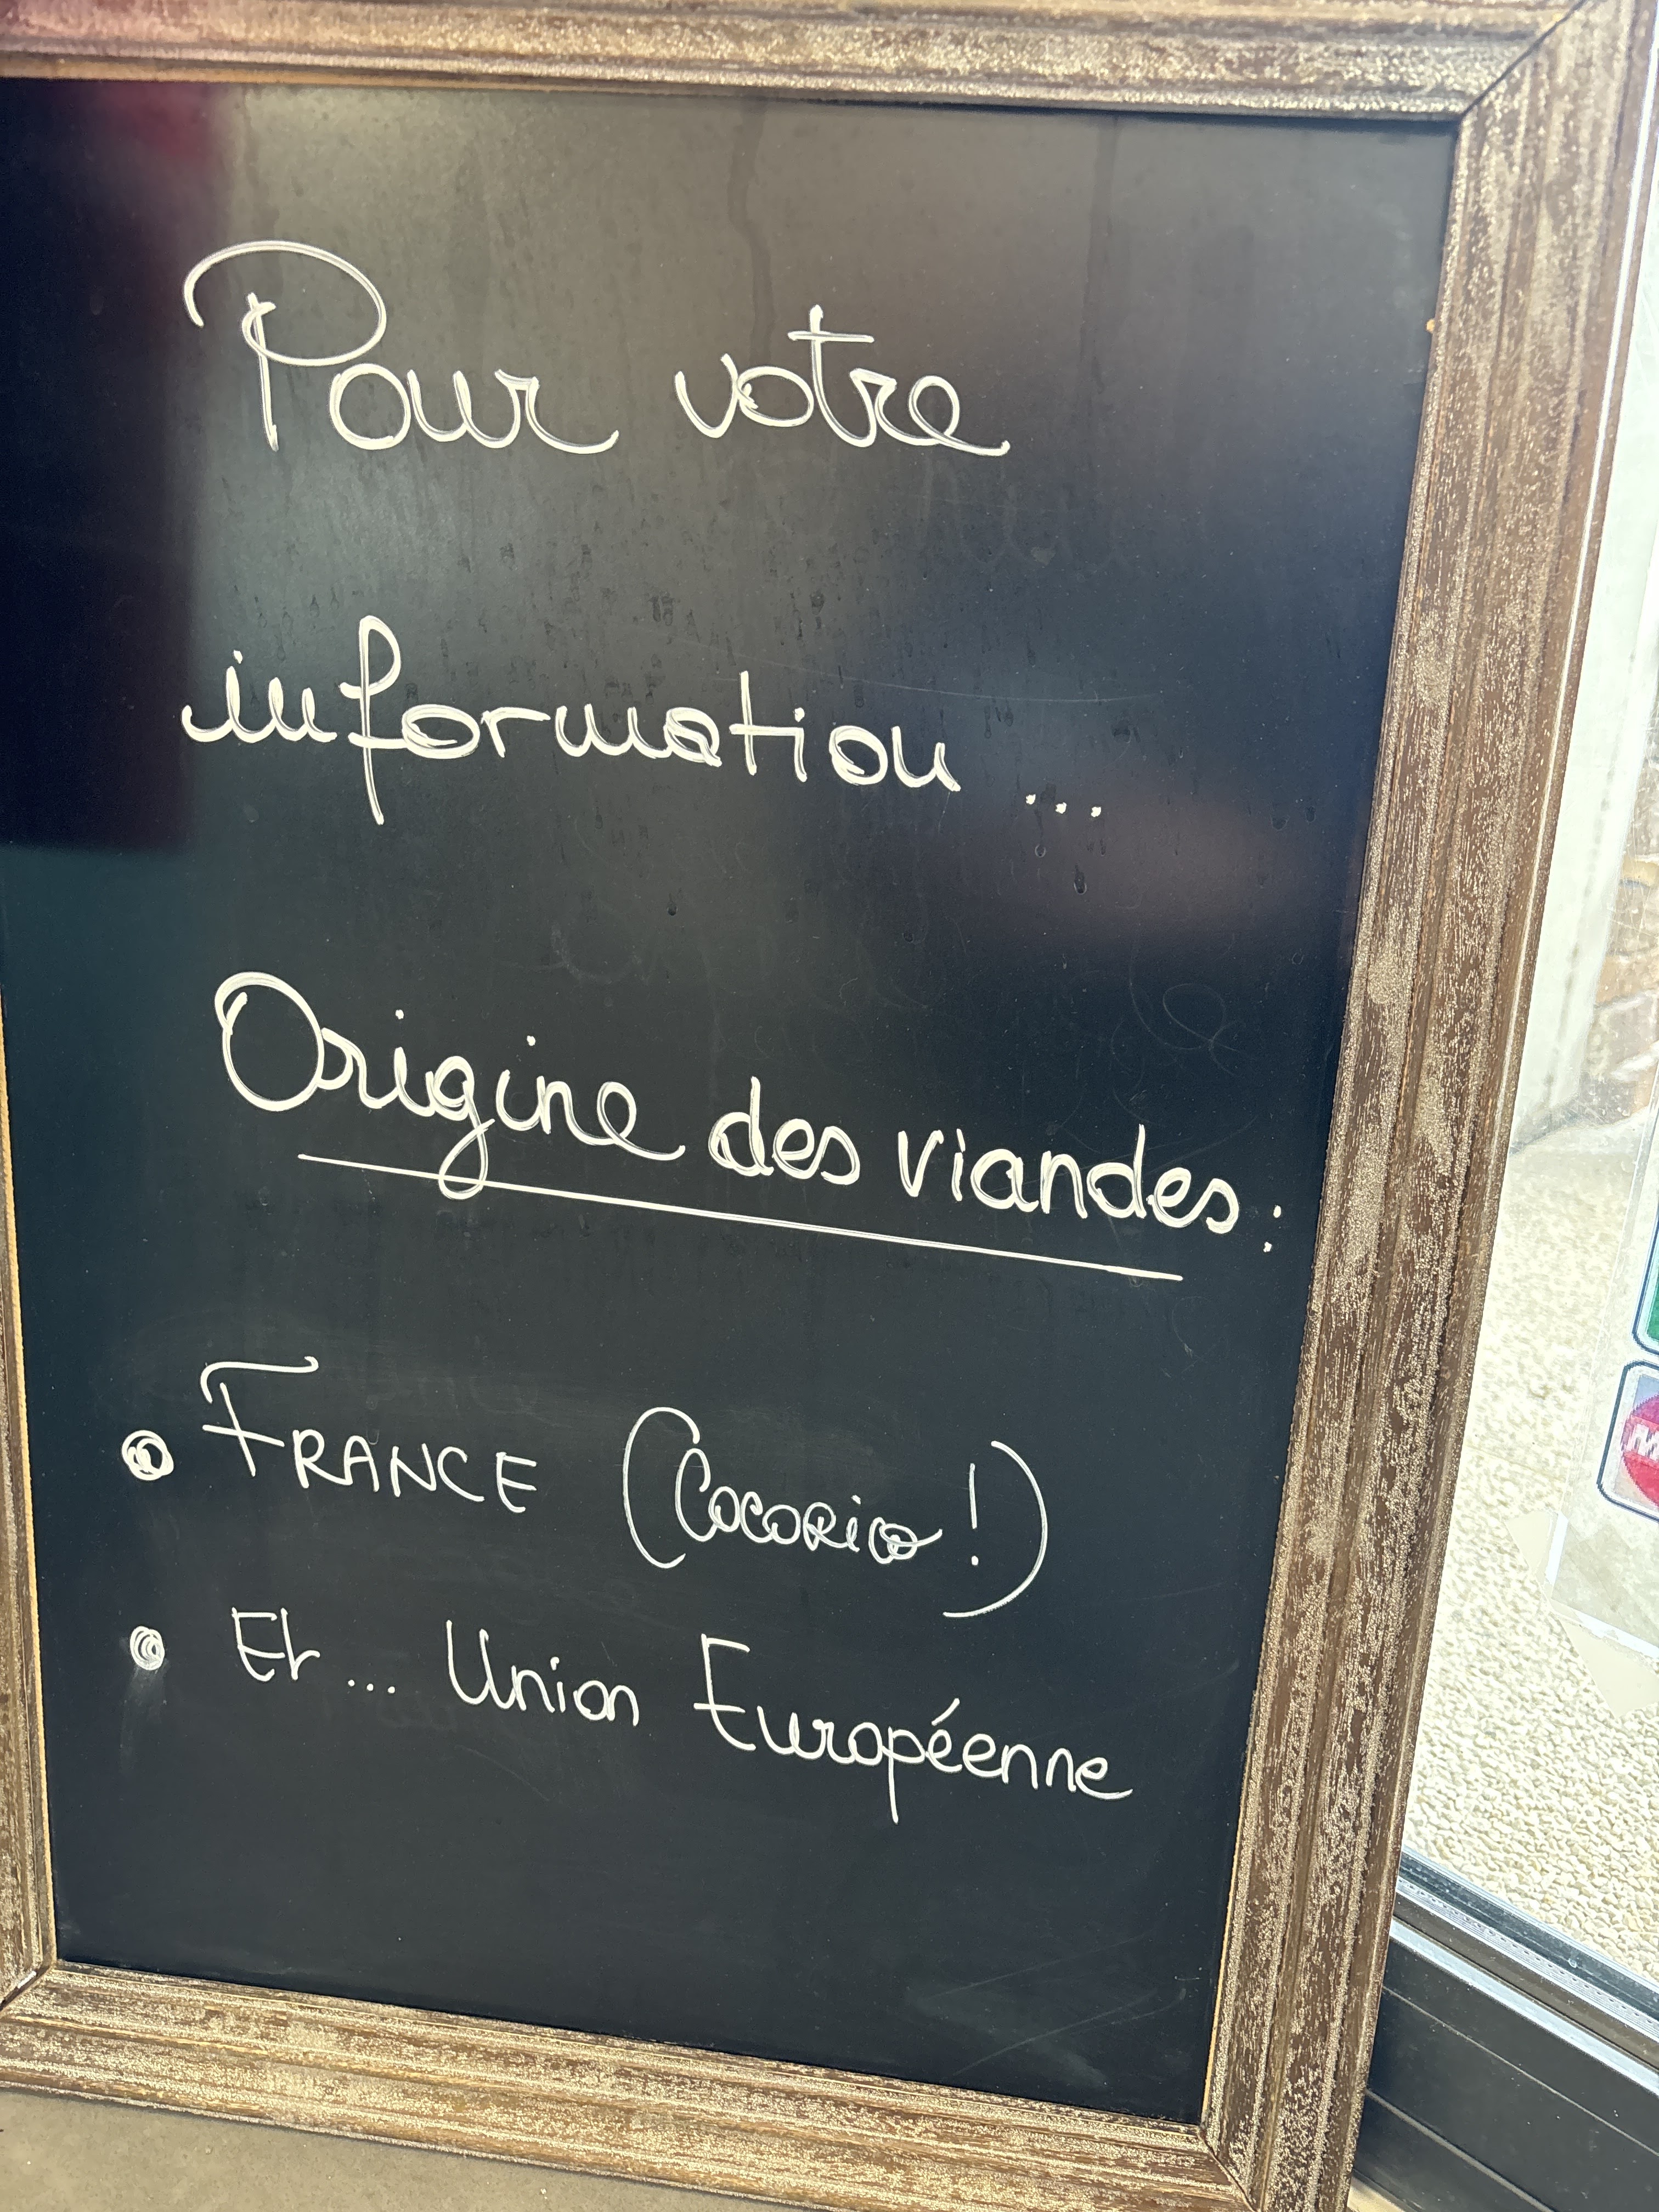 Pour votre
information ...
Origine des viandes :
• FRANCE (Cocorico !)
• Et ... Union Européenne